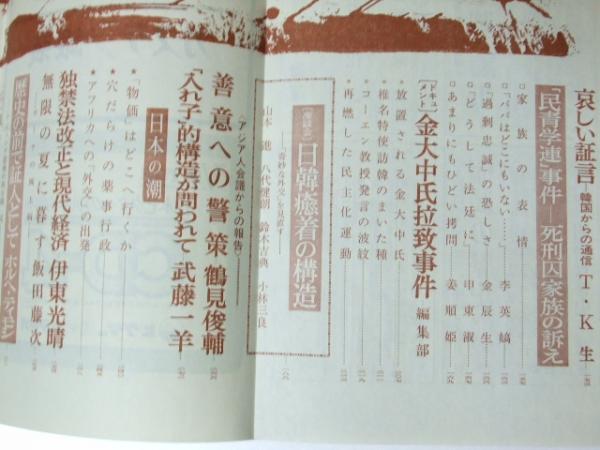 哀しい証言―韓国からの通信 T・K生
「民青学連」事件―死刑囚家族の訴え
家族の表情
「パパはどこにもいない……」 李英鎬
「過剰忠誠」の恐しさ 金辰生
「どうして法廷に」 申東淑
あまりにもひどい拷問 姜順姫
[ドキュメント]金大中氏拉致事件 編集部
★放置される金大中氏
★椎名特使訪韓のまいた種
★コーエン教授発言の波紋
★再燃した民主化運動
日韓癒着の構造
―「奇妙な外交」を見直す―
山本進 八代 鈴木吉典 小林三良
〈アジア人会議からの報告〉
善意への警策 鶴見俊輔
「入れ子」的構造が問われて 武藤一羊
日本の潮
★「物価」はどこへ行くか
★穴だらけの薬事行政
★アフリカへの「外交」の出発
独禁法改正と現代経済 伊東光晴
無限の夏に暮す 飯田藤次
歴史の前で証人として ホルヘ・ティモン